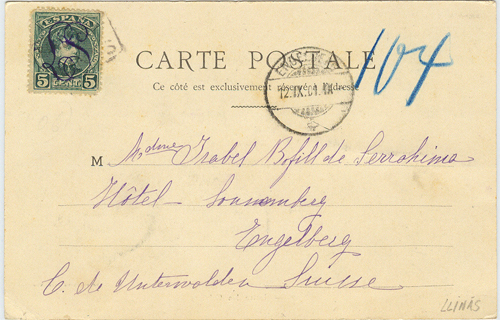 ESPAÑA
5 5
CARTE POSTALE
Ce côté est exclusivement réservé à l'adresse
104
12.IX.01.
M Mdme Isabel Bofill de Serrahima
Hôtel Sonnenberg
Engelberg
C. de Unterwalden Suisse
LLINÁS